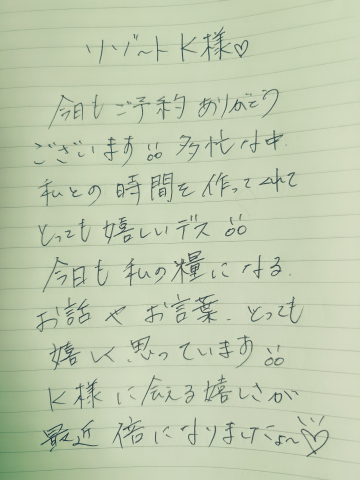 リゾート K様♡
今日もご予約ありがとう
ございます 多忙な中
私との時間を作ってくれて
とっても嬉しいデス
今日も私の糧になる
お話やお言葉、とっても
嬉しく思っています
K様に会える嬉しさが
最近倍になりましたよ〜♡